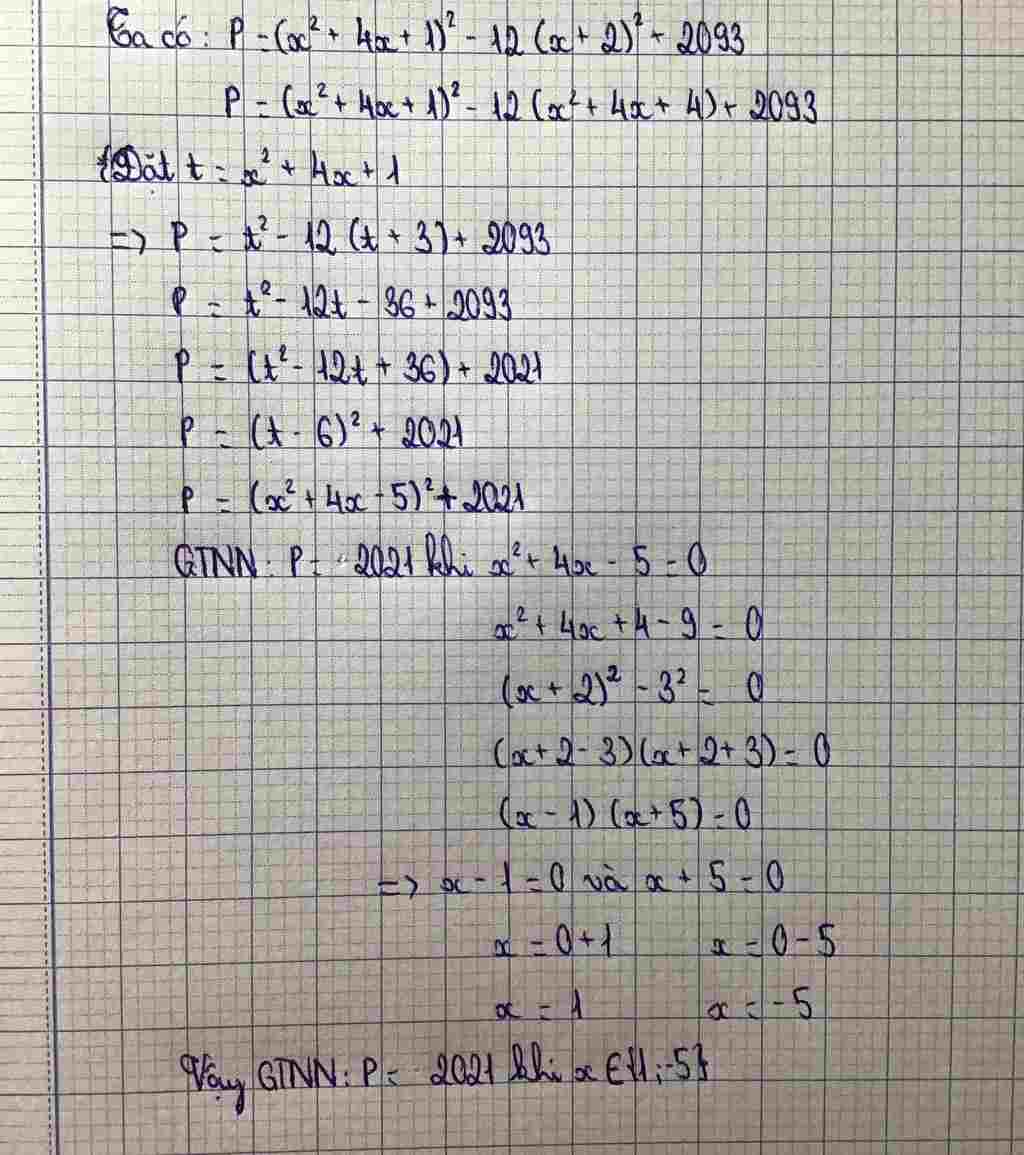 Ta có: P = (x² + 4x + 1)² - 12 (x + 2)² + 2093
P = (x² + 4x + 1)² - 12 (x² + 4x + 4) + 2093
Đặt t = x² + 4x + 1
=> P = t² - 12 (t + 3) + 2093
P = t² - 12t - 36 + 2093
P = (t² - 12t + 36) + 2021
P = (t - 6)² + 2021
P = (x² + 4x - 5)² + 2021
GTNN: P = 2021 khi x² + 4x - 5 = 0
x² + 4x + 4 - 9 = 0
(x + 2)² - 3² = 0
(x + 2 - 3) (x + 2 + 3) = 0
(x - 1) (x + 5) = 0
=> x - 1 = 0 và x + 5 = 0
x = 0 + 1 x = 0 - 5
x = 1 x = -5
Vậy GTNN: P = 2021 khi x ∈ {1; -5}